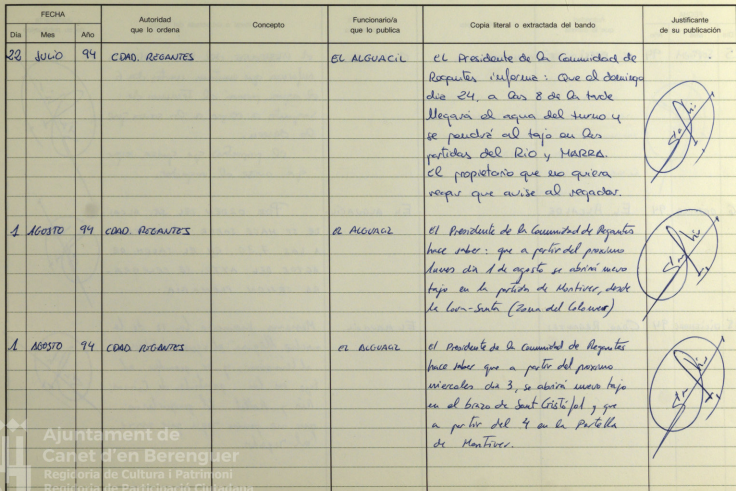 FECHA
Autoridad que lo ordena
Concepto
Funcionario/a que lo publica
Copia literal o extractada del bando
Justificante de su publicación
Día Mes Año
22 JULIO 94 CDAD. REGANTES EL ALGUACIL EL Presidente de la Comunidad de
Regantes informa: Que el domingo
día 24, a las 8 de la tarde
llegará el agua del turno y
se pondrá al tajo en las
partidas del RIO y MARRA.
El propietario que no quiera
regar que avise al regador.
1 AGOSTO 94 CDAD. REGANTES EL ALGUACIL El Presidente de la Comunidad de Regantes
hace saber: que a partir del proximo
lunes dia 1 de agosto se abrirá nuevo
tajo en la partida de Montiver, desde
la Cova-Santa (Zona del Colomer)
1 AGOSTO 94 CDAD. REGANTES EL ALGUACIL El Presidente de la Comunidad de Regantes
hace saber que a partir del proximo
miercoles dia 3, se abrirá nuevo tajo
en el brazo de Sant Cristófol y que
a partir del 4 en la Partella
de Montiver.
Ajuntament de
Canet d'en Berenguer
Regidoria de Cultura i Patrimoni
Regidoria de Participació Ciutadana